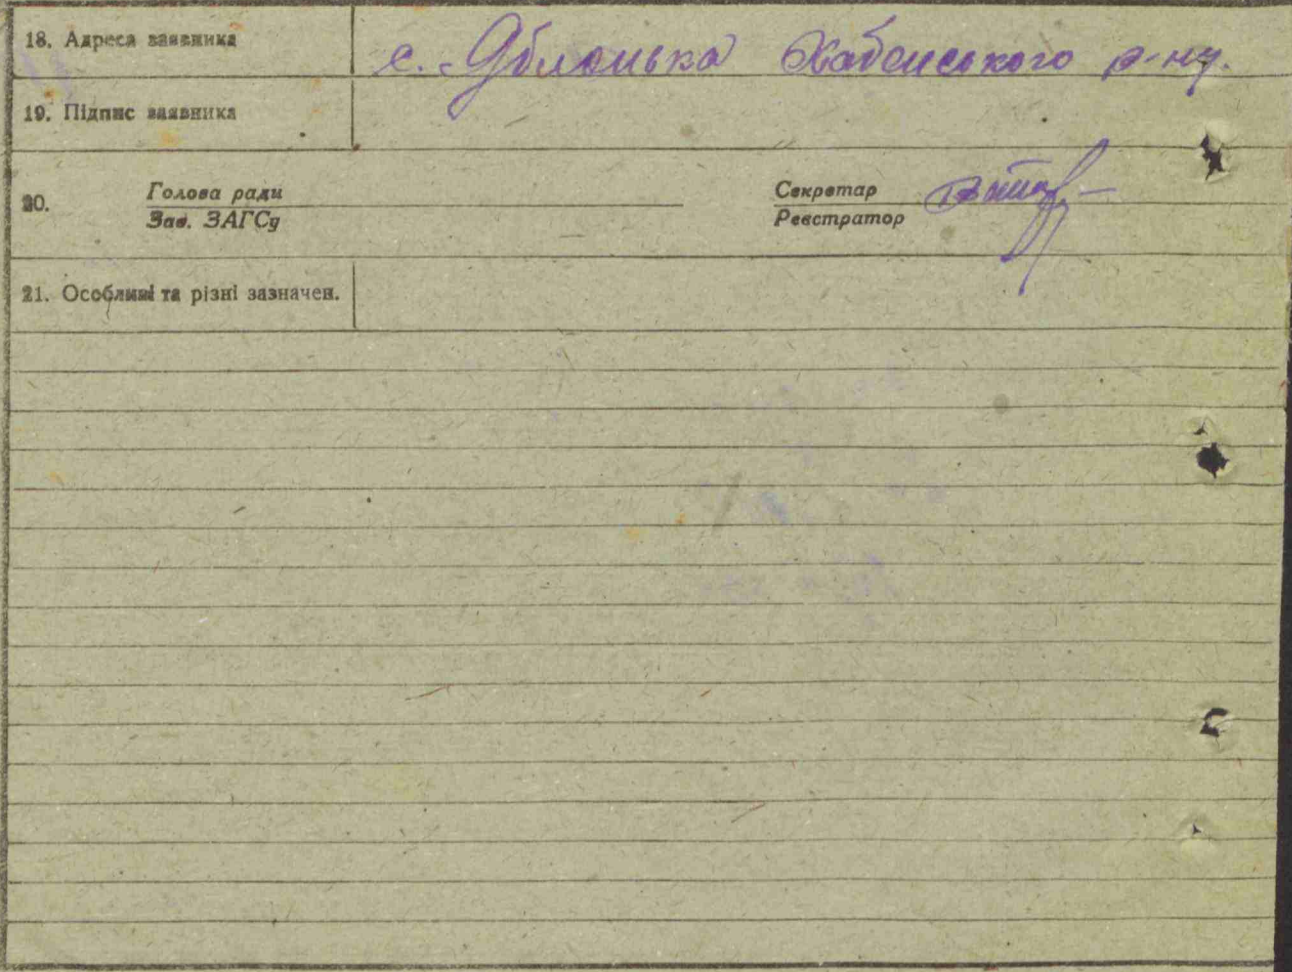 18. Адреса заявника с. Яблонька Хабенського р-ну.
19. Підпис заявника
20. Голова ради Секретар
Зав. ЗАГСу Реєстратор
21. Особливі та різні зазначен.